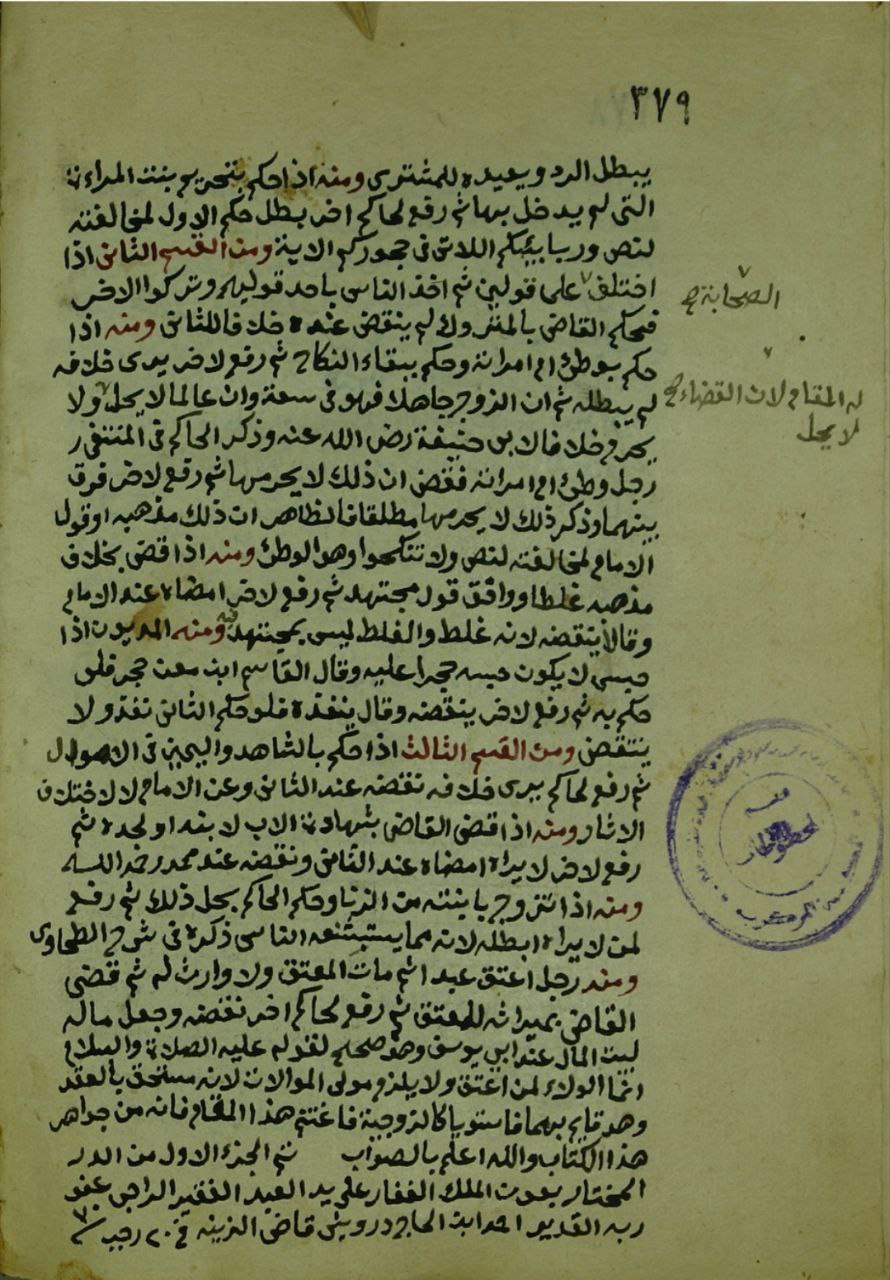 ٣٧٩
يبطل الرد ويعيده للمشترى ومنه اذا حكم بتحريم بنت المراءة
التى لم يدخل بها ثم رفع لحاكم اخر بطل حكم الاول لمخالفته
لنص وربايبكم اللاتى فى حجوركم الاية ومن القسم الثانى اذا
اختلف على قولين ثم اخذ الناس باحد قوليهم وتركوا الاخر
الصحابة
فحكم القاضى بالمتروك لم ينقض عنده خلافا للثانى ومنه اذا
حكم بوطئ ام امراته وحكم ببقاء النكاح ثم رفع لاخر يرى خلافه
لم يبطله ثم ان الزوج جاهلا فهو فى سعة وان عالما لا يحل ولا
له المقام لان القضاء
لا يحل
يحرم خلافا لابى حنيفة رضى الله عنه وذكر الحاكم فى المنتقى
رجل وطئ ام امراته فقضى ان ذلك لا يحرمها ثم رفع لاخر فرق
بينهما وذكر ذلك لا يحرمها مطلقا فالظاهر ان ذلك مذهبه او قول
الامام لمخالفته لنص ولا تنكحوا وهو الوطئ ومنه اذا قضى بخلاف
مذهبه غلطا ووافق قول مجتهد ثم رفع لاخر امضاه عند الامام
وقالا ينقضه لانه غلط والغلط ليس بمجتهد فيه ومنه المديون اذا
حبس لا يكون حبسه حجرا عليه وقال القاسم ابن معن حجر فلو
حكم به ثم رفع لاخر ينقضه وقال ينفذه فلو حكم الثانى نفذ ولا
ينتقض ومن القسم الثالث اذا حكم بالشاهد واليمين فى الاموال
ثم رفع لحاكم يرى خلافه نقضه عند الثانى وعن الامام لا لاختلاف
الاثار ومنه اذا قضى القاضى بشهادة الاب لابنه او لجده ثم
رفع لاخر لا يراه امضاه عند الثانى ونقضه عند محمد رحمه الله
ومنه اذا تزوج بابنته من الزنا وحكم الحاكم بحل ذلك ثم رفع
لمن لا يراه ابطله لانه مما يستبشعه الناس ذكره فى شرح الطحاوى
ومنه رجل اعتق عبدا ثم مات المعتق ولا وارث له ثم قضى
القاضى بميراثه للمعتق ثم رفع لحاكم اخر نقضه وجعل ماله
لبيت المال عند ابى يوسف وهو صحيح لقوله عليه الصلاة والسلام
انما الولاء لمن اعتق ولا يلزم مولى الموالات لانه مستحق بالعقد
وهو قايم بهما فاستويا كالزوجية فاغتنم هذا المقام فانه من جواهر
هذا الكتاب والله اعلم بالصواب تم الجزء الاول من الدر
المختار بعون الملك الغفار على يد العبد الفقير الراجى عفو
ربه القدير احمد ابن الحاج درويش قاضى الزينه فى ٢٠ رجب